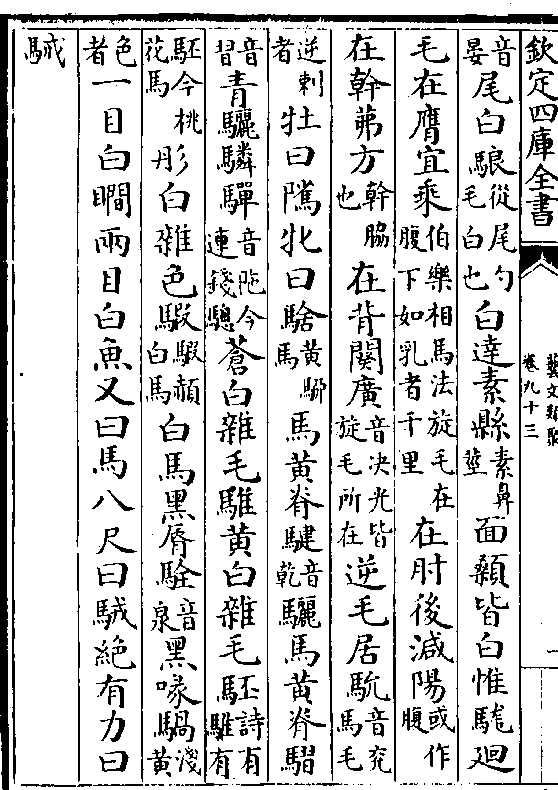 欽定四庫全書
藝文類聚
卷九十三
一
音晏尾白駺從尾勺毛白也白達素縣素鼻莖面顙皆白惟駹廻
毛在膺宜乘伯樂相馬法旋毛在腹下如乳者千里在肘後減陽或作腹
在幹茀方幹脇也在背闋廣音决光皆旋毛所在逆毛居馻音兖馬毛
逆剌者牡曰騭牝曰騇黄馬馬黄脊騝音乾驪馬黄脊騽
音習青驪驎驒音陁今連錢驄蒼白雜毛騅黄白雜毛駓詩有騅有
駓今桃花馬彤白雜色騢騢頳白馬白馬黑脣駩音泉黑喙騧淺黄
色者一目白瞯兩目白魚又曰馬八尺曰駥絶有力曰
駴